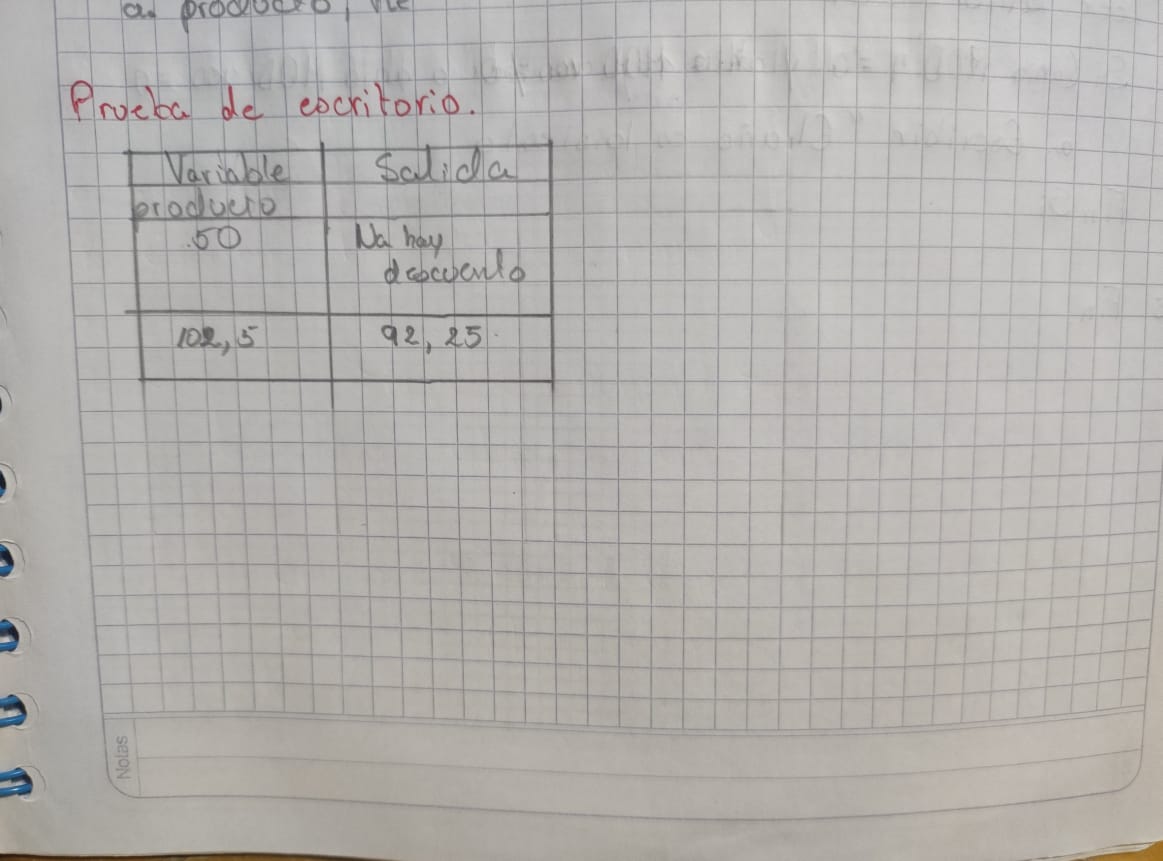 a. producto,
Prueba de escritorio.
Variable producto
Salida
50
No hay
descuento
102,5
92, 25
Notas